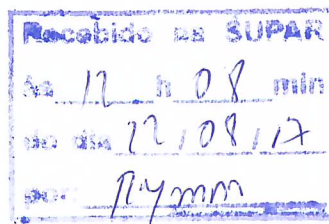 Recebido na SUPAR
às 12 h 08 min
do dia 22/08/17
por: